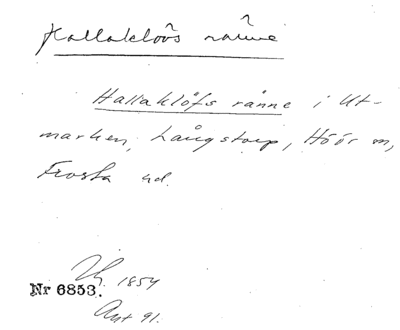 Hallaklöös ränne
Hallaklöfs ränne i Ut-
marken, Långstorp, Höör sn,
Frosta hd.
1854
Nr 6853.
Ant 91.